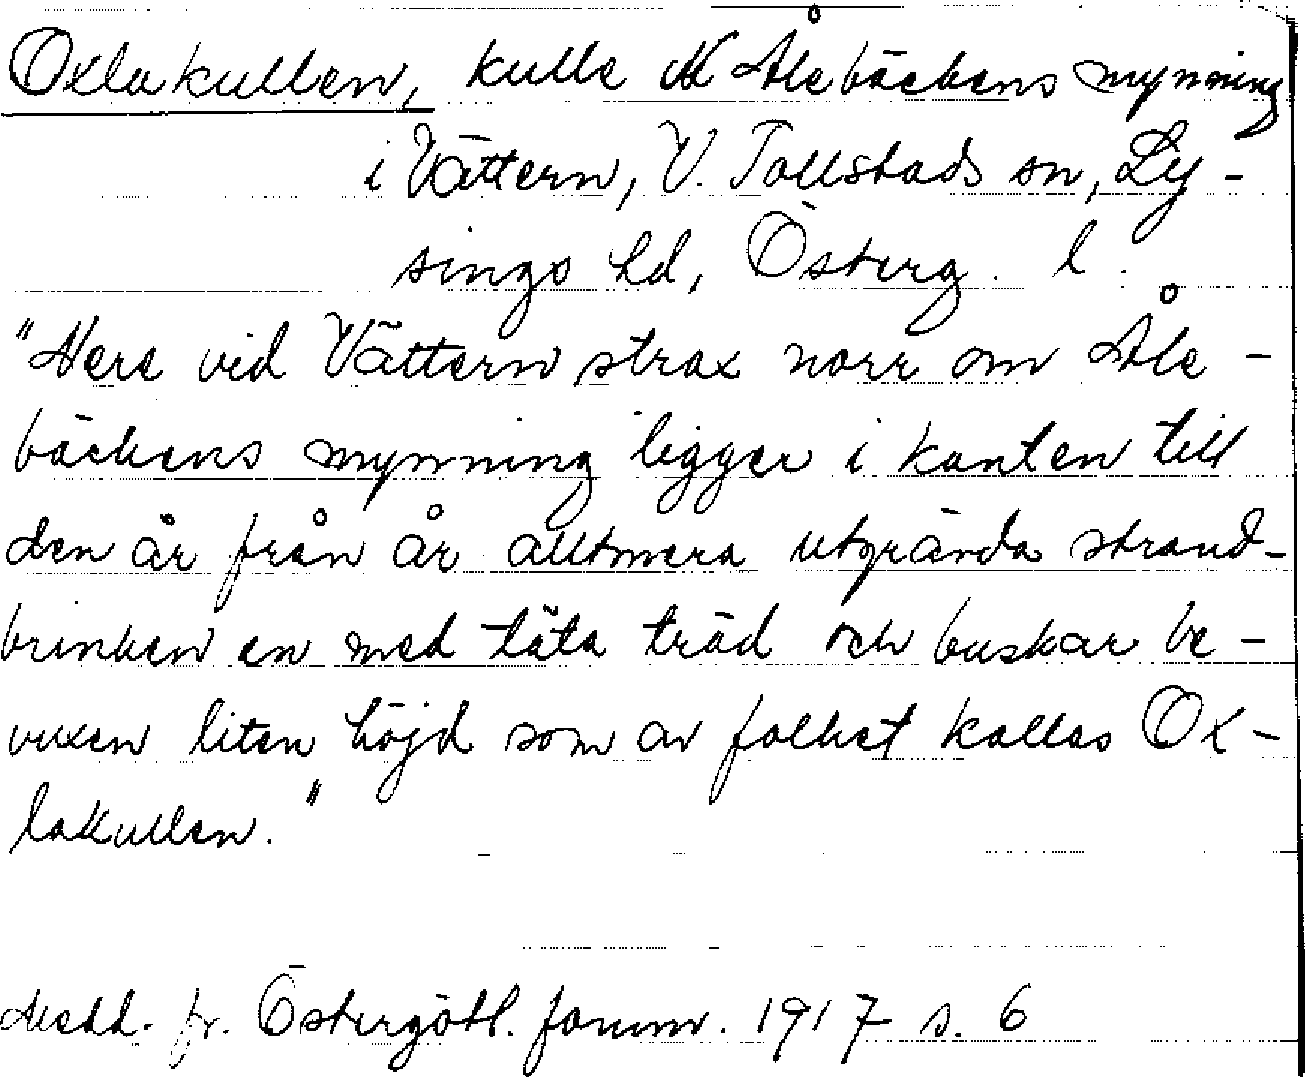 Oxlakullen, kulle N Ålebäckens mynning
i Vättern, V. Tollstads sn, Ly-
singo hd, Österg. l.
"Nere vid Vättern strax norr om Åle-
bäckens mynning ligger i kanten till
den år från år alltmera utgrävda strand-
brinken en med täta träd och buskar be-
vuxen liten höjd som av folket kallas Ox-
lakullen."
Medd. fr. Östergötl. fornm. 1917 s. 6